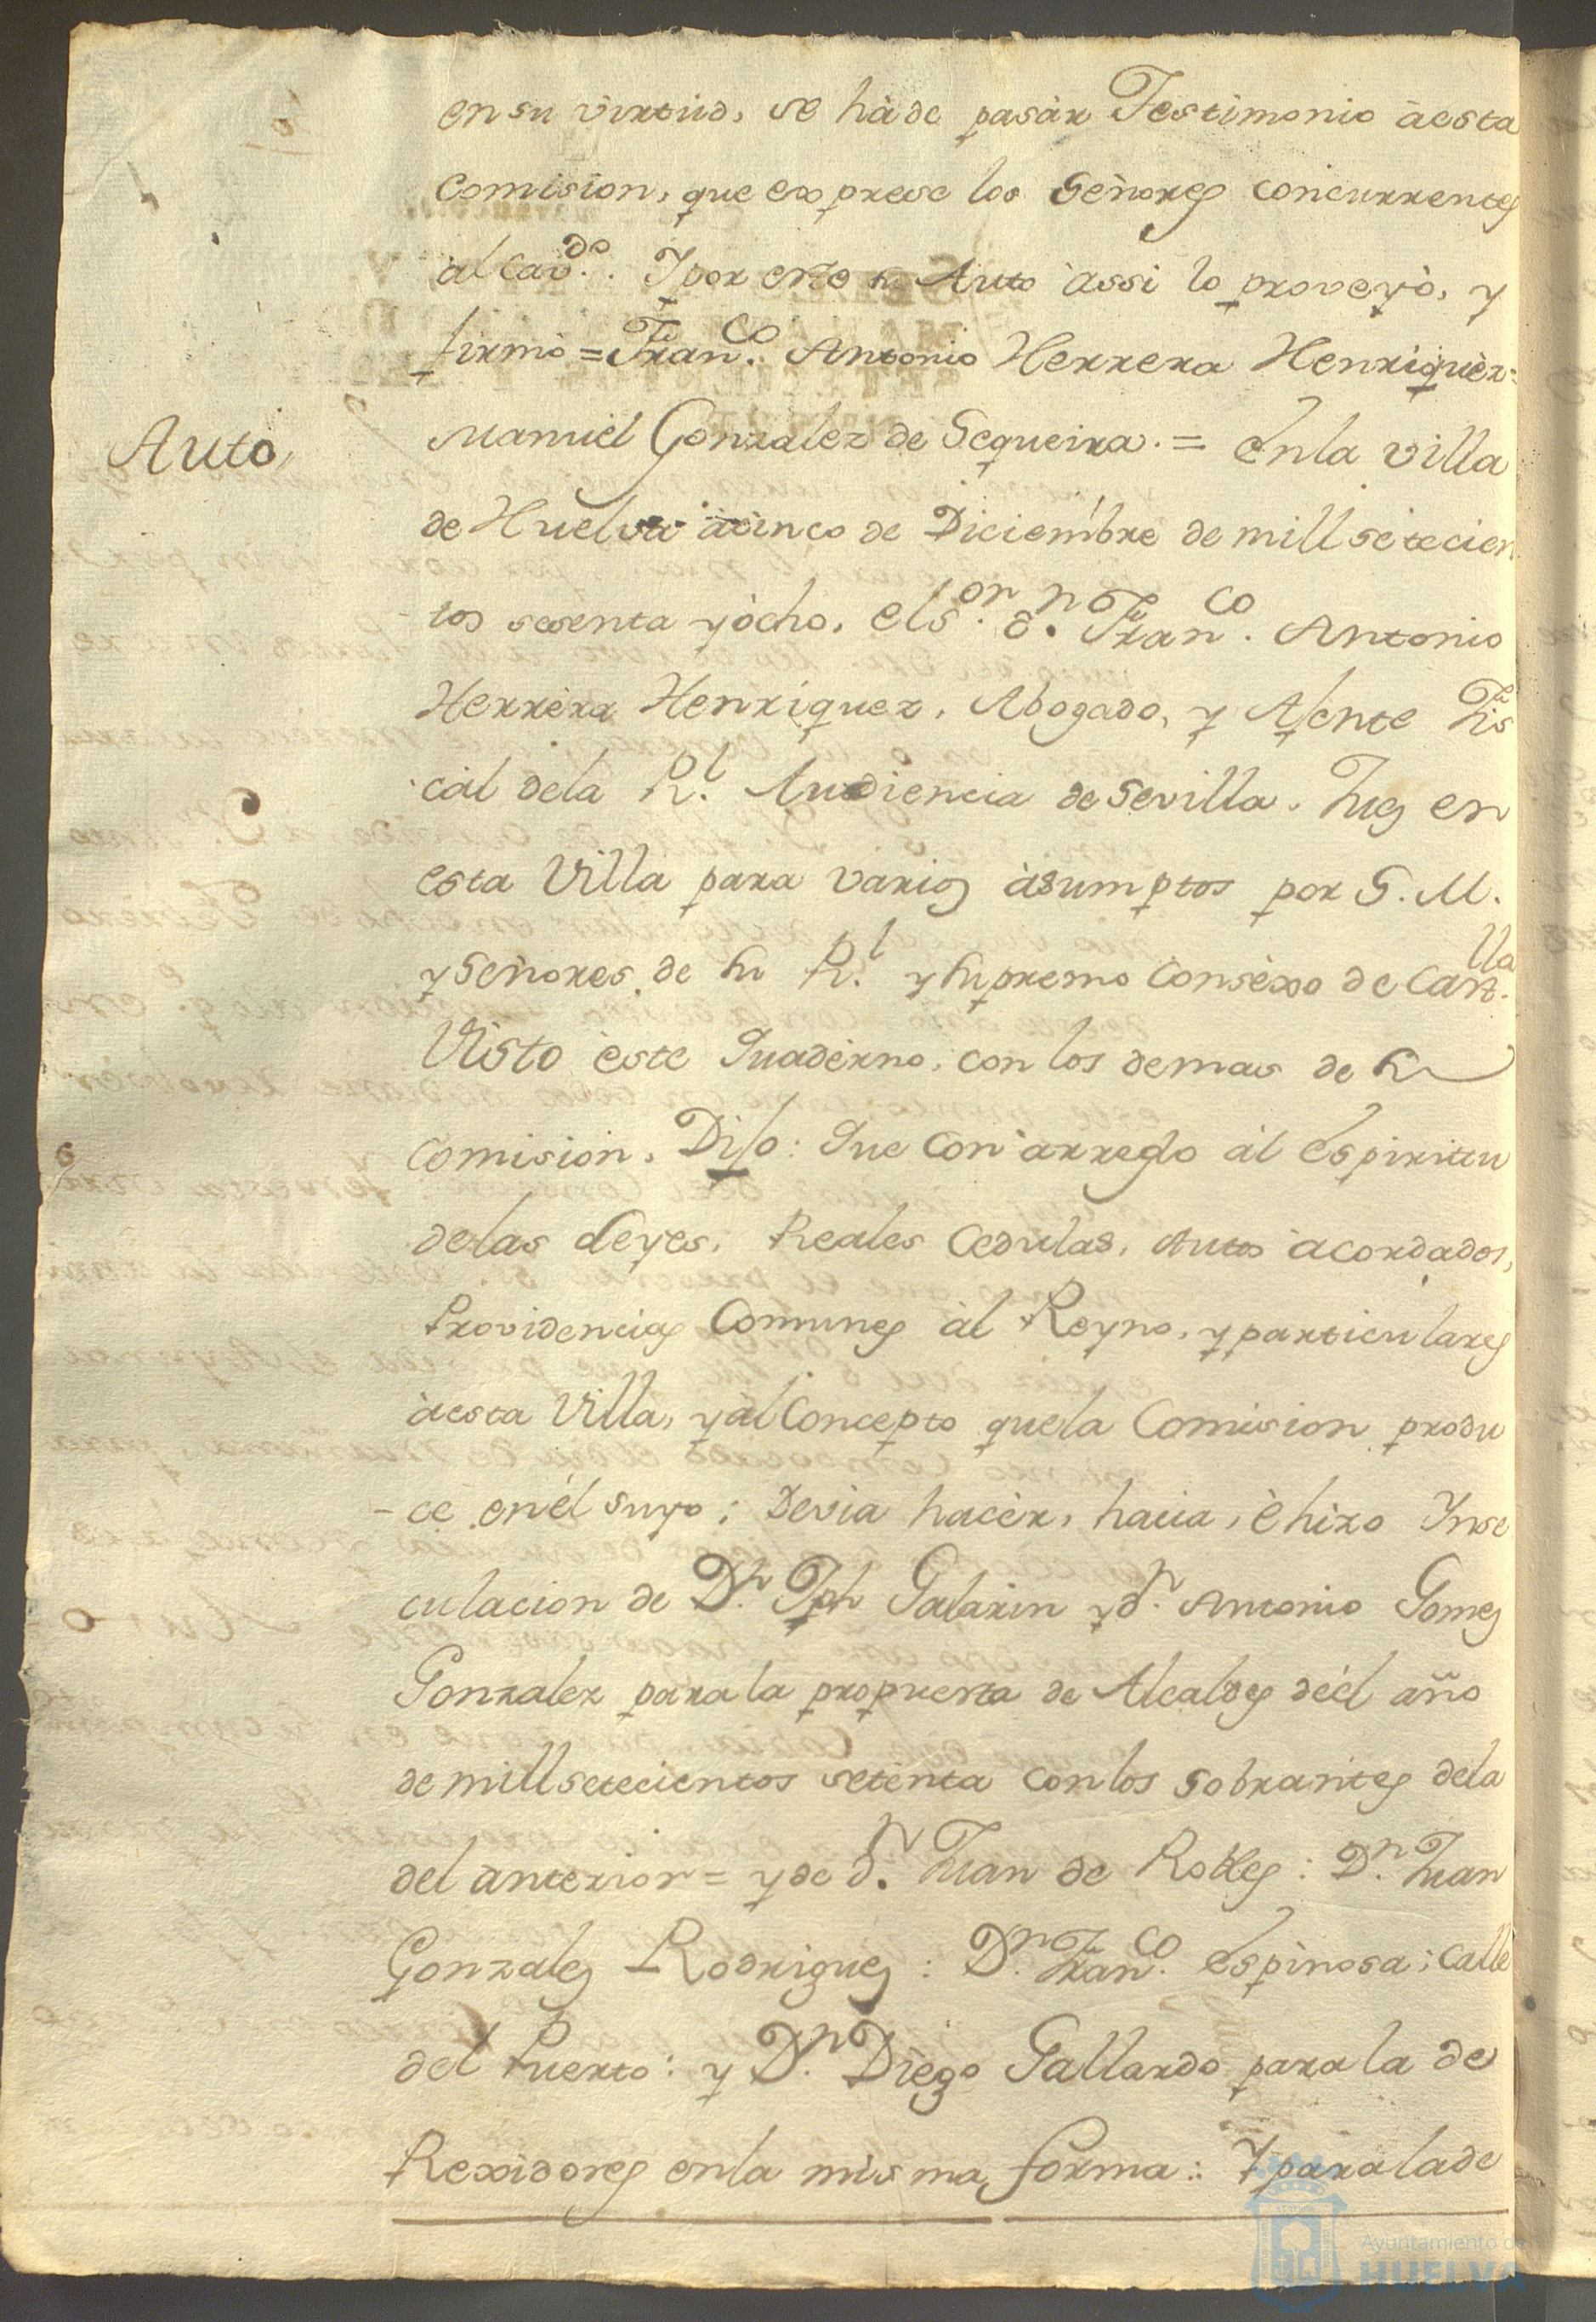 en su virtud, se hà de pasàr Testimonio àesta
comision, que exprese los Señores concurrentes
al Cav.do. Y por este su Auto àssi lo proveyò, y
firmò = Fran.co Antonio Herrera Henriquèz =
Auto
Manuèl Gonzalez de Sequeira. = En la villa
de Huelva àcinco de Diciembre de mill setecien
tos sesenta y òcho, el s.or d.n Fran.co Antonio
Herrera Henriquez, Abogado, y Ajente Fis
càl dela R.l Audiencia de Sevilla, Juez en
esta Villa para varios àsumptos por S. M.
y Señores de su R.l y Supremo Consèxo de Cast.lla
Visto èste Quadèrno, con los demas de su
Comision, Dijo: Que con arreglo àl Espiritu
delas Leyes, Reales Cedulas, Autos àcordados,
Providencias Comunes àl Reyno, y particulares
àesta Villa, y àl Concepto que la Comision produ
ce en èl suyo; Devia hacèr, hacia, è hizo Ynse
culacion de D.n Jph Galarin y d.n Antonio Gomez
Gonzalez para la propuesta de Alcaldes dèl año
de mill setecientos setenta con los sobrantes dela
del anterior = y de d.n Juan de Robles: D.n Juan
Gonzalez Rodriguez: D.n Fran.co Espinosa; calle
del Puerto: y D.n Diego Gallardo para la de
Rexidores en la misma forma: Y para la de
Ayuntamiento de
HUELVA